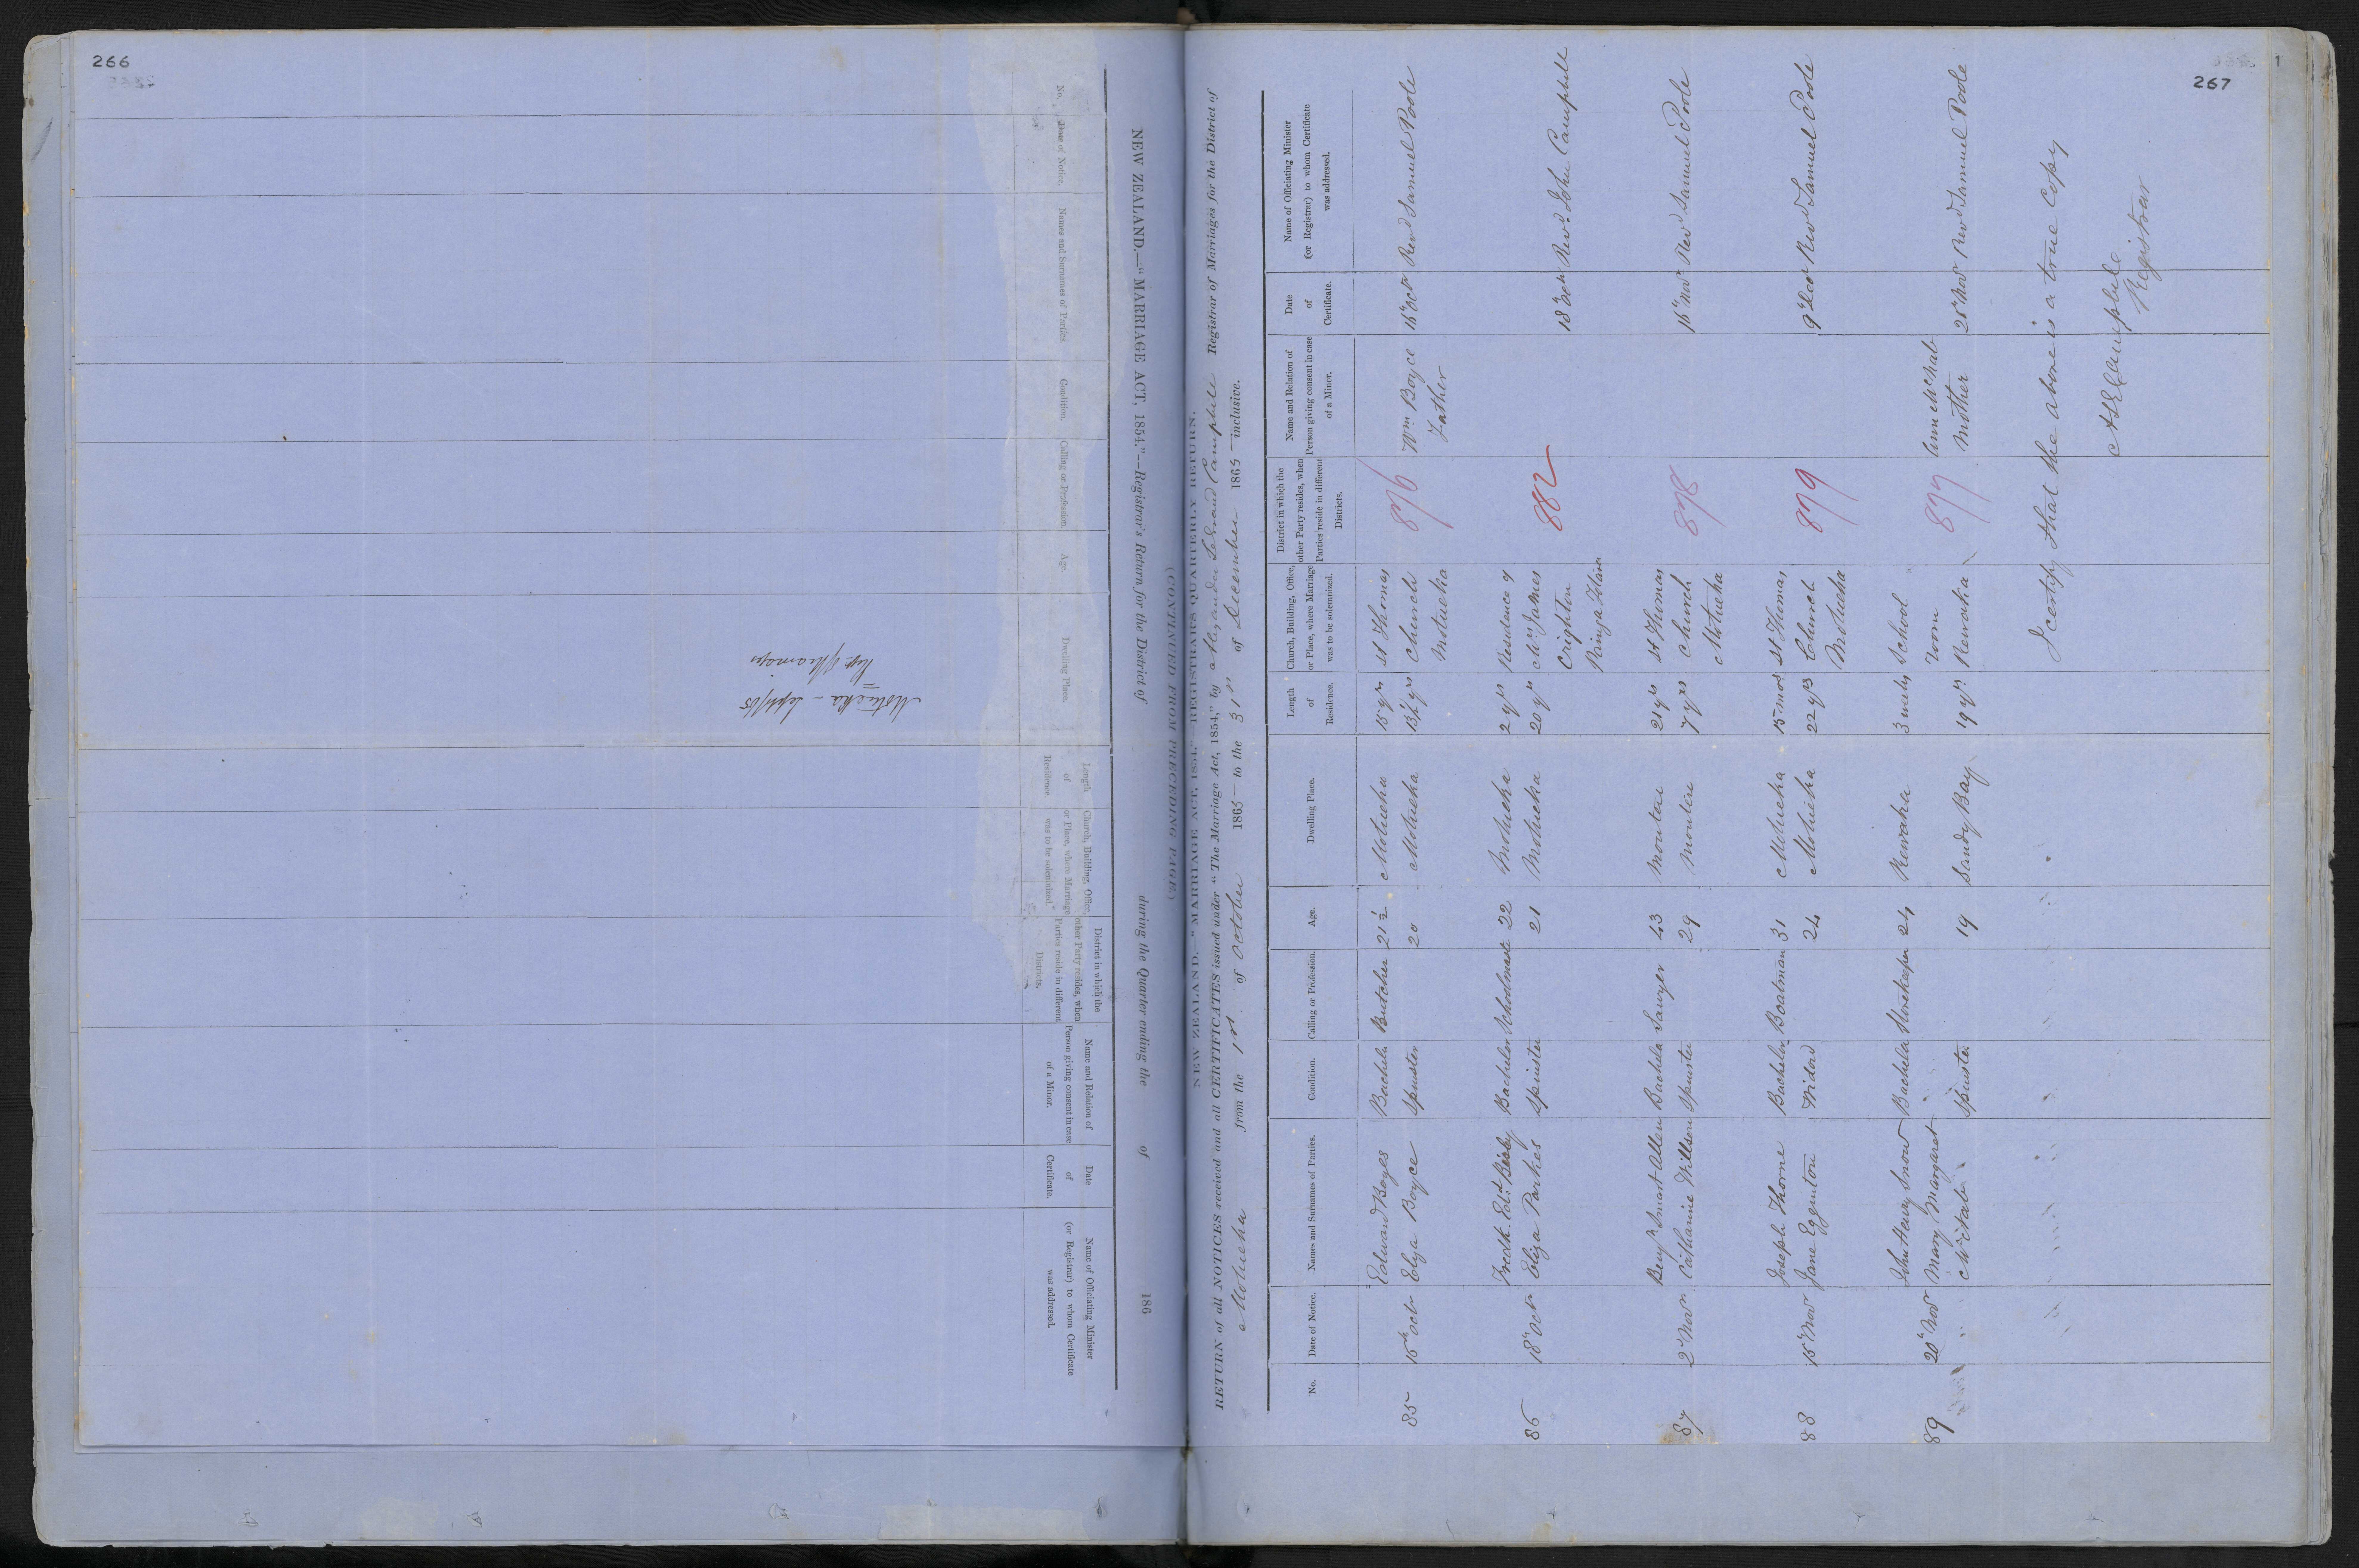 266
NEW ZEALAND.—"MARRIAGE ACT, 1854."—Registrar's Return for the District of during the Quarter ending the of 186
(CONTINUED FROM PRECEDING PAGE.)
No. Date of Notice. Names and Surnames of Parties. Condition. Calling or Profession. Age. Dwelling Place. Length of Residence. Church, Building, Office, or Place, where Marriage was to be solemnized. District in which the other Party resides, when Parties reside in different Districts. Name and Relation of Person giving consent in case of a Minor. Date of Certificate. Name of Officiating Minister (or Registrar) to whom Certificate was addressed.
Motueka - Sept/65
267
1
NEW ZEALAND.—"MARRIAGE ACT, 1854."—REGISTRAR'S QUARTERLY RETURN.
RETURN of all NOTICES received and all CERTIFICATES issued under "The Marriage Act, 1854," by Alexander Legrand Campbell Registrar of Marriages for the District of
Motueka from the 1st of October 1865 to the 31st of December 1865 inclusive.
No. Date of Notice. Names and Surnames of Parties. Condition. Calling or Profession. Age. Dwelling Place. Length of Residence. Church, Building, Office, or Place, where Marriage was to be solemnized. District in which the other Party resides, when Parties reside in different Districts. Name and Relation of Person giving consent in case of a Minor. Date of Certificate. Name of Officiating Minister (or Registrar) to whom Certificate was addressed.
Edward Boyes Bachelor Butcher 21½ Motueka 15 yrs St Thomas
85 16th Octr Eliza Boyce Spinster 20 Motueka 13½ yrs Church 876 Wm Boyce 16 Octr Revd Samuel Poole
Motueka Father
Fredk Edwd Bisley Bachelor Schoolmaster 22 Motueka 2 yrs Residence of
86 18 Octr Eliza Parkes Spinster 21 Motueka 20 yrs Mr James 882
Crighton 18 Octr Revd John Campbell
Benjn Smart Allen Bachelor Sawyer 43 Moutere 21 yrs St Thomas
87 2 Novr Catharine Willson Spinster 29 Moutere 7 yrs Church 878 16 Novr Revd Samuel Poole
Motueka
Joseph Thorne Bachelor Boatman 31 Motueka 15 mos St Thomas
88 15 Novr Jane Egginton Widow 24 Motueka 22 yrs Church 879 9 Decr Revd Samuel Poole
Motueka
John Henry Snow Bachelor Storekeeper 24 Riwaka 3 weeks School
89 20 Novr Mary Margaret room 877 Ann McNab
McNab Spinster 19 Sandy Bay 19 yrs Rewaka Mother 20 Novr Revd Samuel Poole
I certify that the above is a true Copy
A L Campbell
Registrar